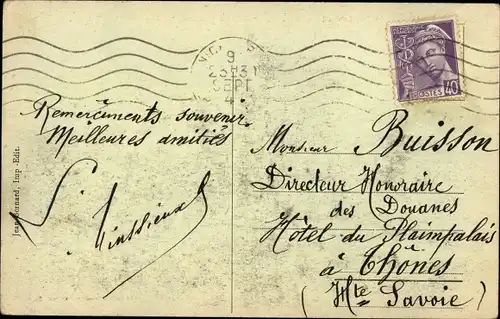 9
23H30
SEPT
POSTES
40
Remerciments souvenir
Meilleures amitiés
Jean Bernard, Imp.-Edit.
Monsieur Buisson
Directeur Honoraire
des Douanes
Hôtel du Plaimpalais
à Thônes
(Hte Savoie)